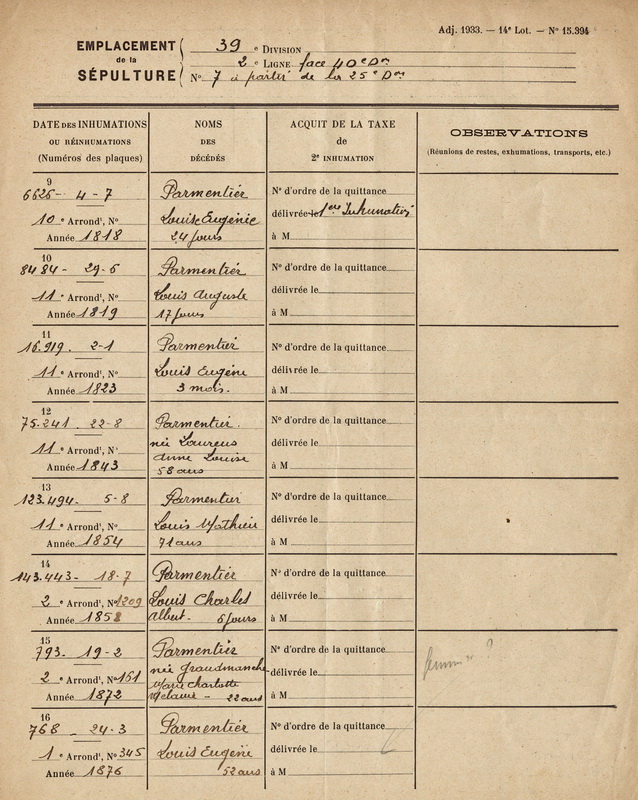 Adj. 1933. — 14e Lot. — No 15.394
EMPLACEMENT de la SÉPULTURE
39 e DIVISION
2 e LIGNE face 40e Don
No 7 à partir de la 25e Don
DATE DES INHUMATIONS OU RÉINHUMATIONS (Numéros des plaques)
NOMS DES DÉCÉDÉS
ACQUIT DE LA TAXE de 2e INHUMATION
OBSERVATIONS (Réunions de restes, exhumations, transports, etc.)
9
6626 - 4 - 7 Parmentier No d'ordre de la quittance
10 e Arrondt, No Louise Eugénie délivrée le 1ere Inhumation
Année 1818 24 jours à M
10
8484 - 29-6 Parmentier No d'ordre de la quittance
11 e Arrondt, No Louis Auguste délivrée le
Année 1819 17 jours à M
11
16.919. 2-1 Parmentier No d'ordre de la quittance
11 e Arrondt, No Louis Eugène délivrée le
Année 1823 3 mois. à M
12
75.241. 22-8 Parmentier. No d'ordre de la quittance
11 e Arrondt, No née Laurens délivrée le
Anne Louise
Année 1843 58 ans à M
13
123.494. 5-8 Parmentier No d'ordre de la quittance
11 e Arrondt, No Louis Mathieu délivrée le
Année 1854 71 ans à M
14
143.443 - 18-7 Parmentier No d'ordre de la quittance
2 e Arrondt, No 1209 Louis Charles délivrée le
Année 1858 Albert. 6 jours à M
15
793. 19-2 Parmentier No d'ordre de la quittance
2 e Arrondt, No 161 née Grandmanche délivrée le
Marie Charlotte
Année 1872 - 22 ans à M
16
768 - 24-3 Parmentier No d'ordre de la quittance
1 e Arrondt, No 345 Louis Eugène délivrée le
Année 1876 52 ans à M